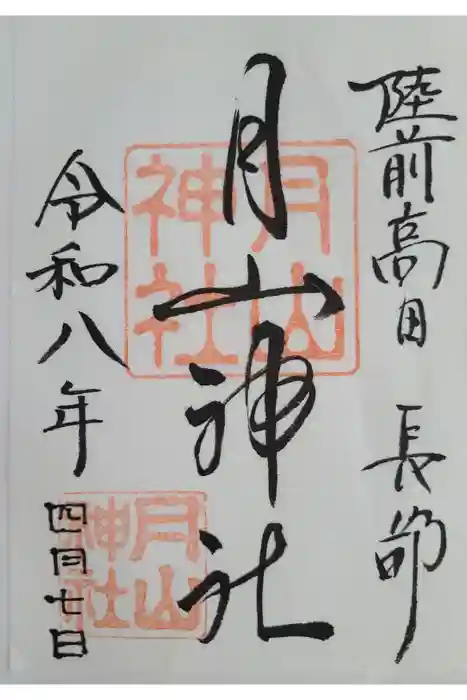 陸前高田 長部
月山神社
月山神社
令和八年
四月七日
月山神社